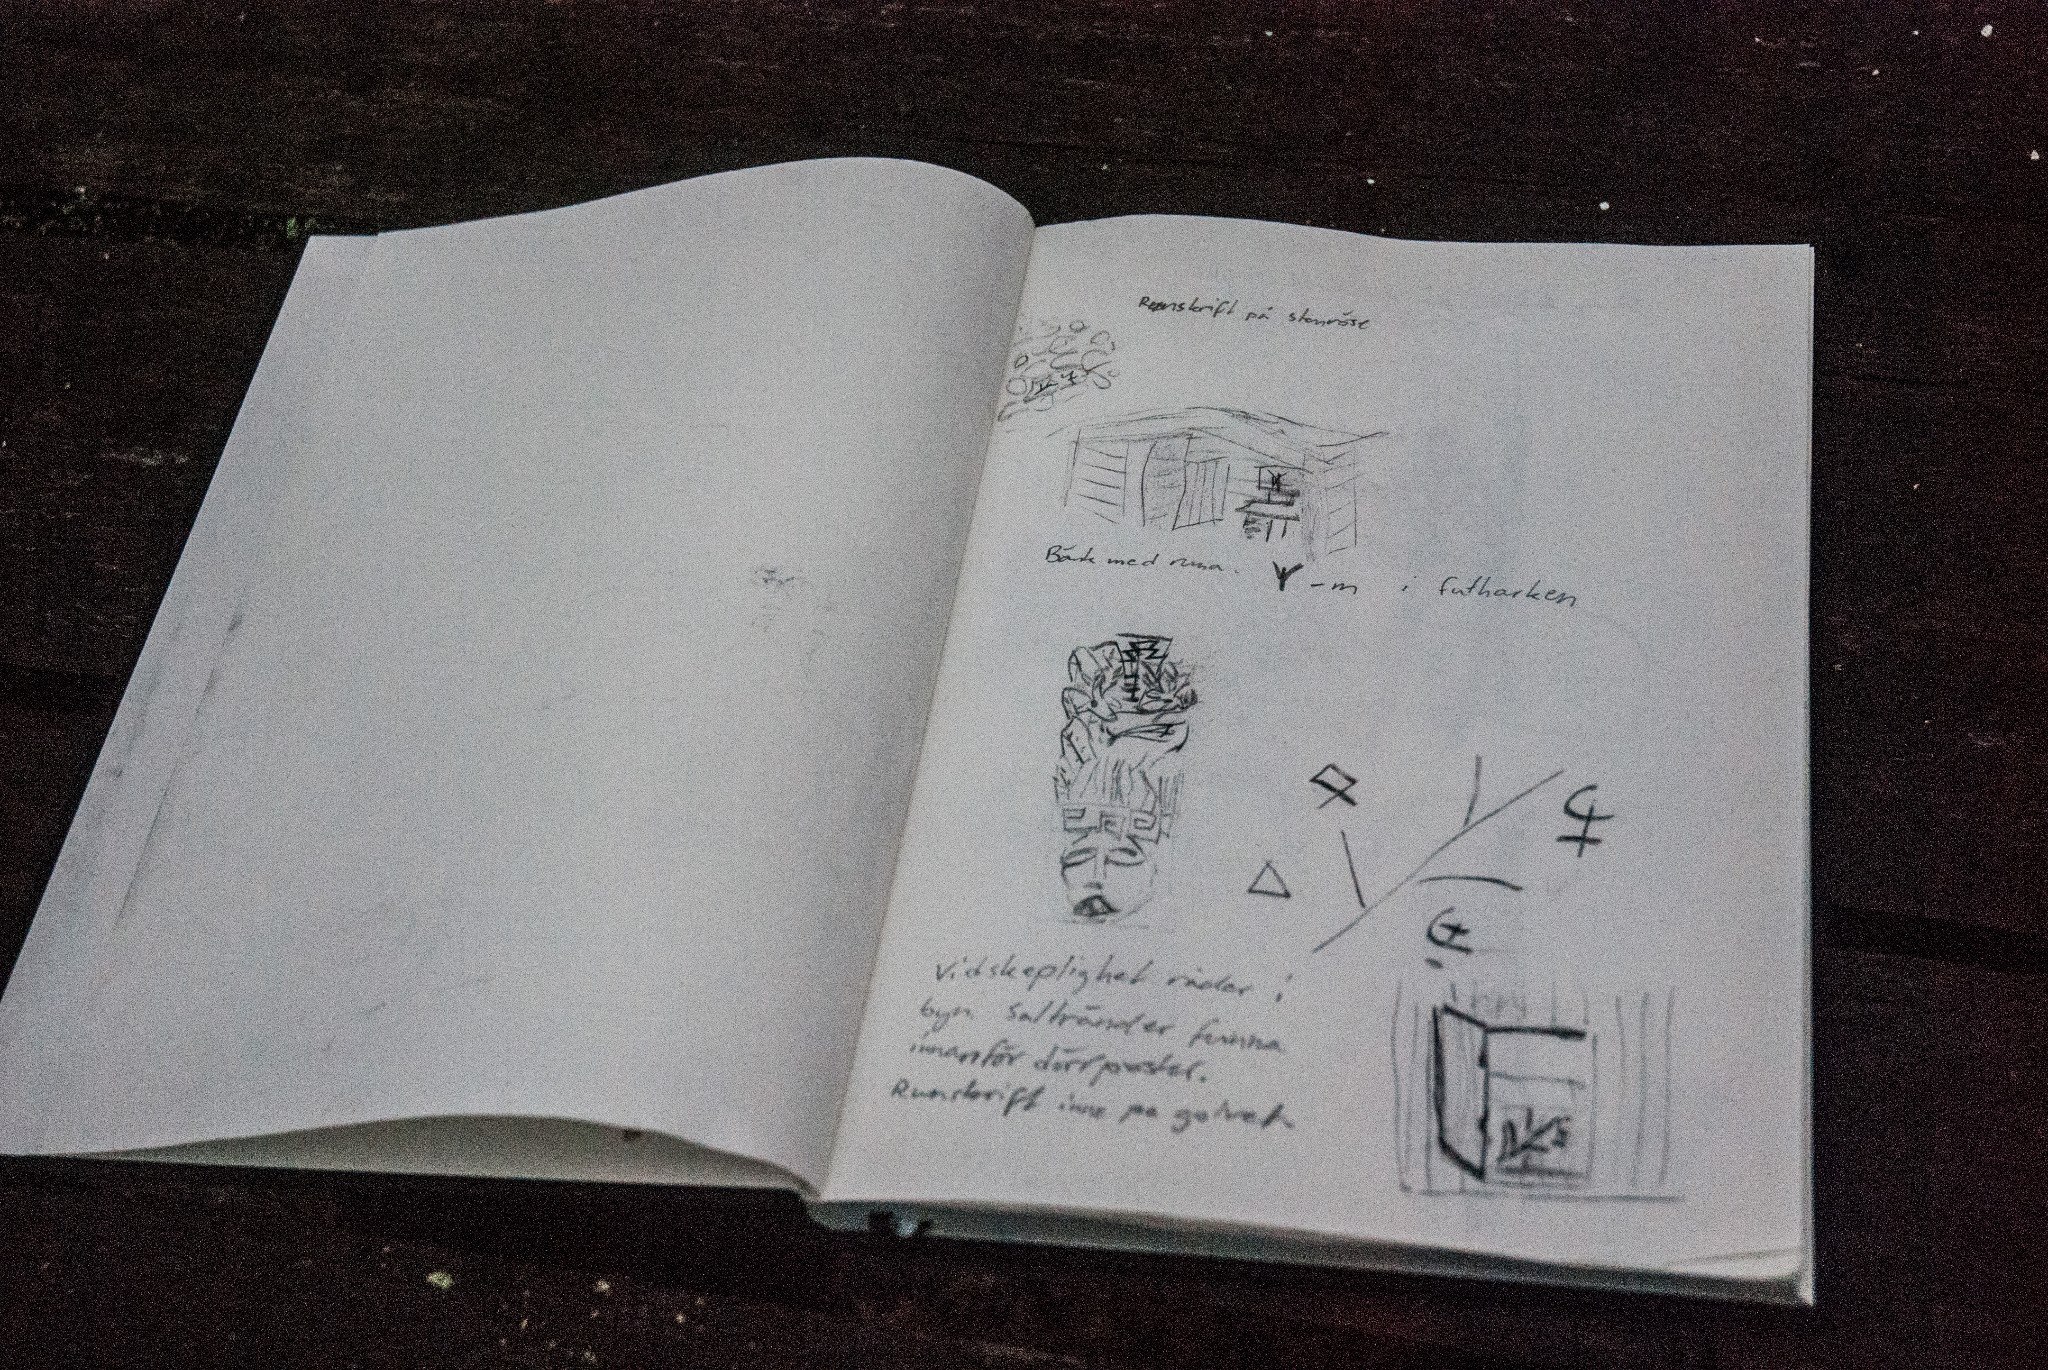 Runskrift på stenröse
Bänk med runa. ᛉ - m i futharken
Vidskeplighet råder i
byn saltränder funna
innanför dörrposter.
Runskrift inne på golvet